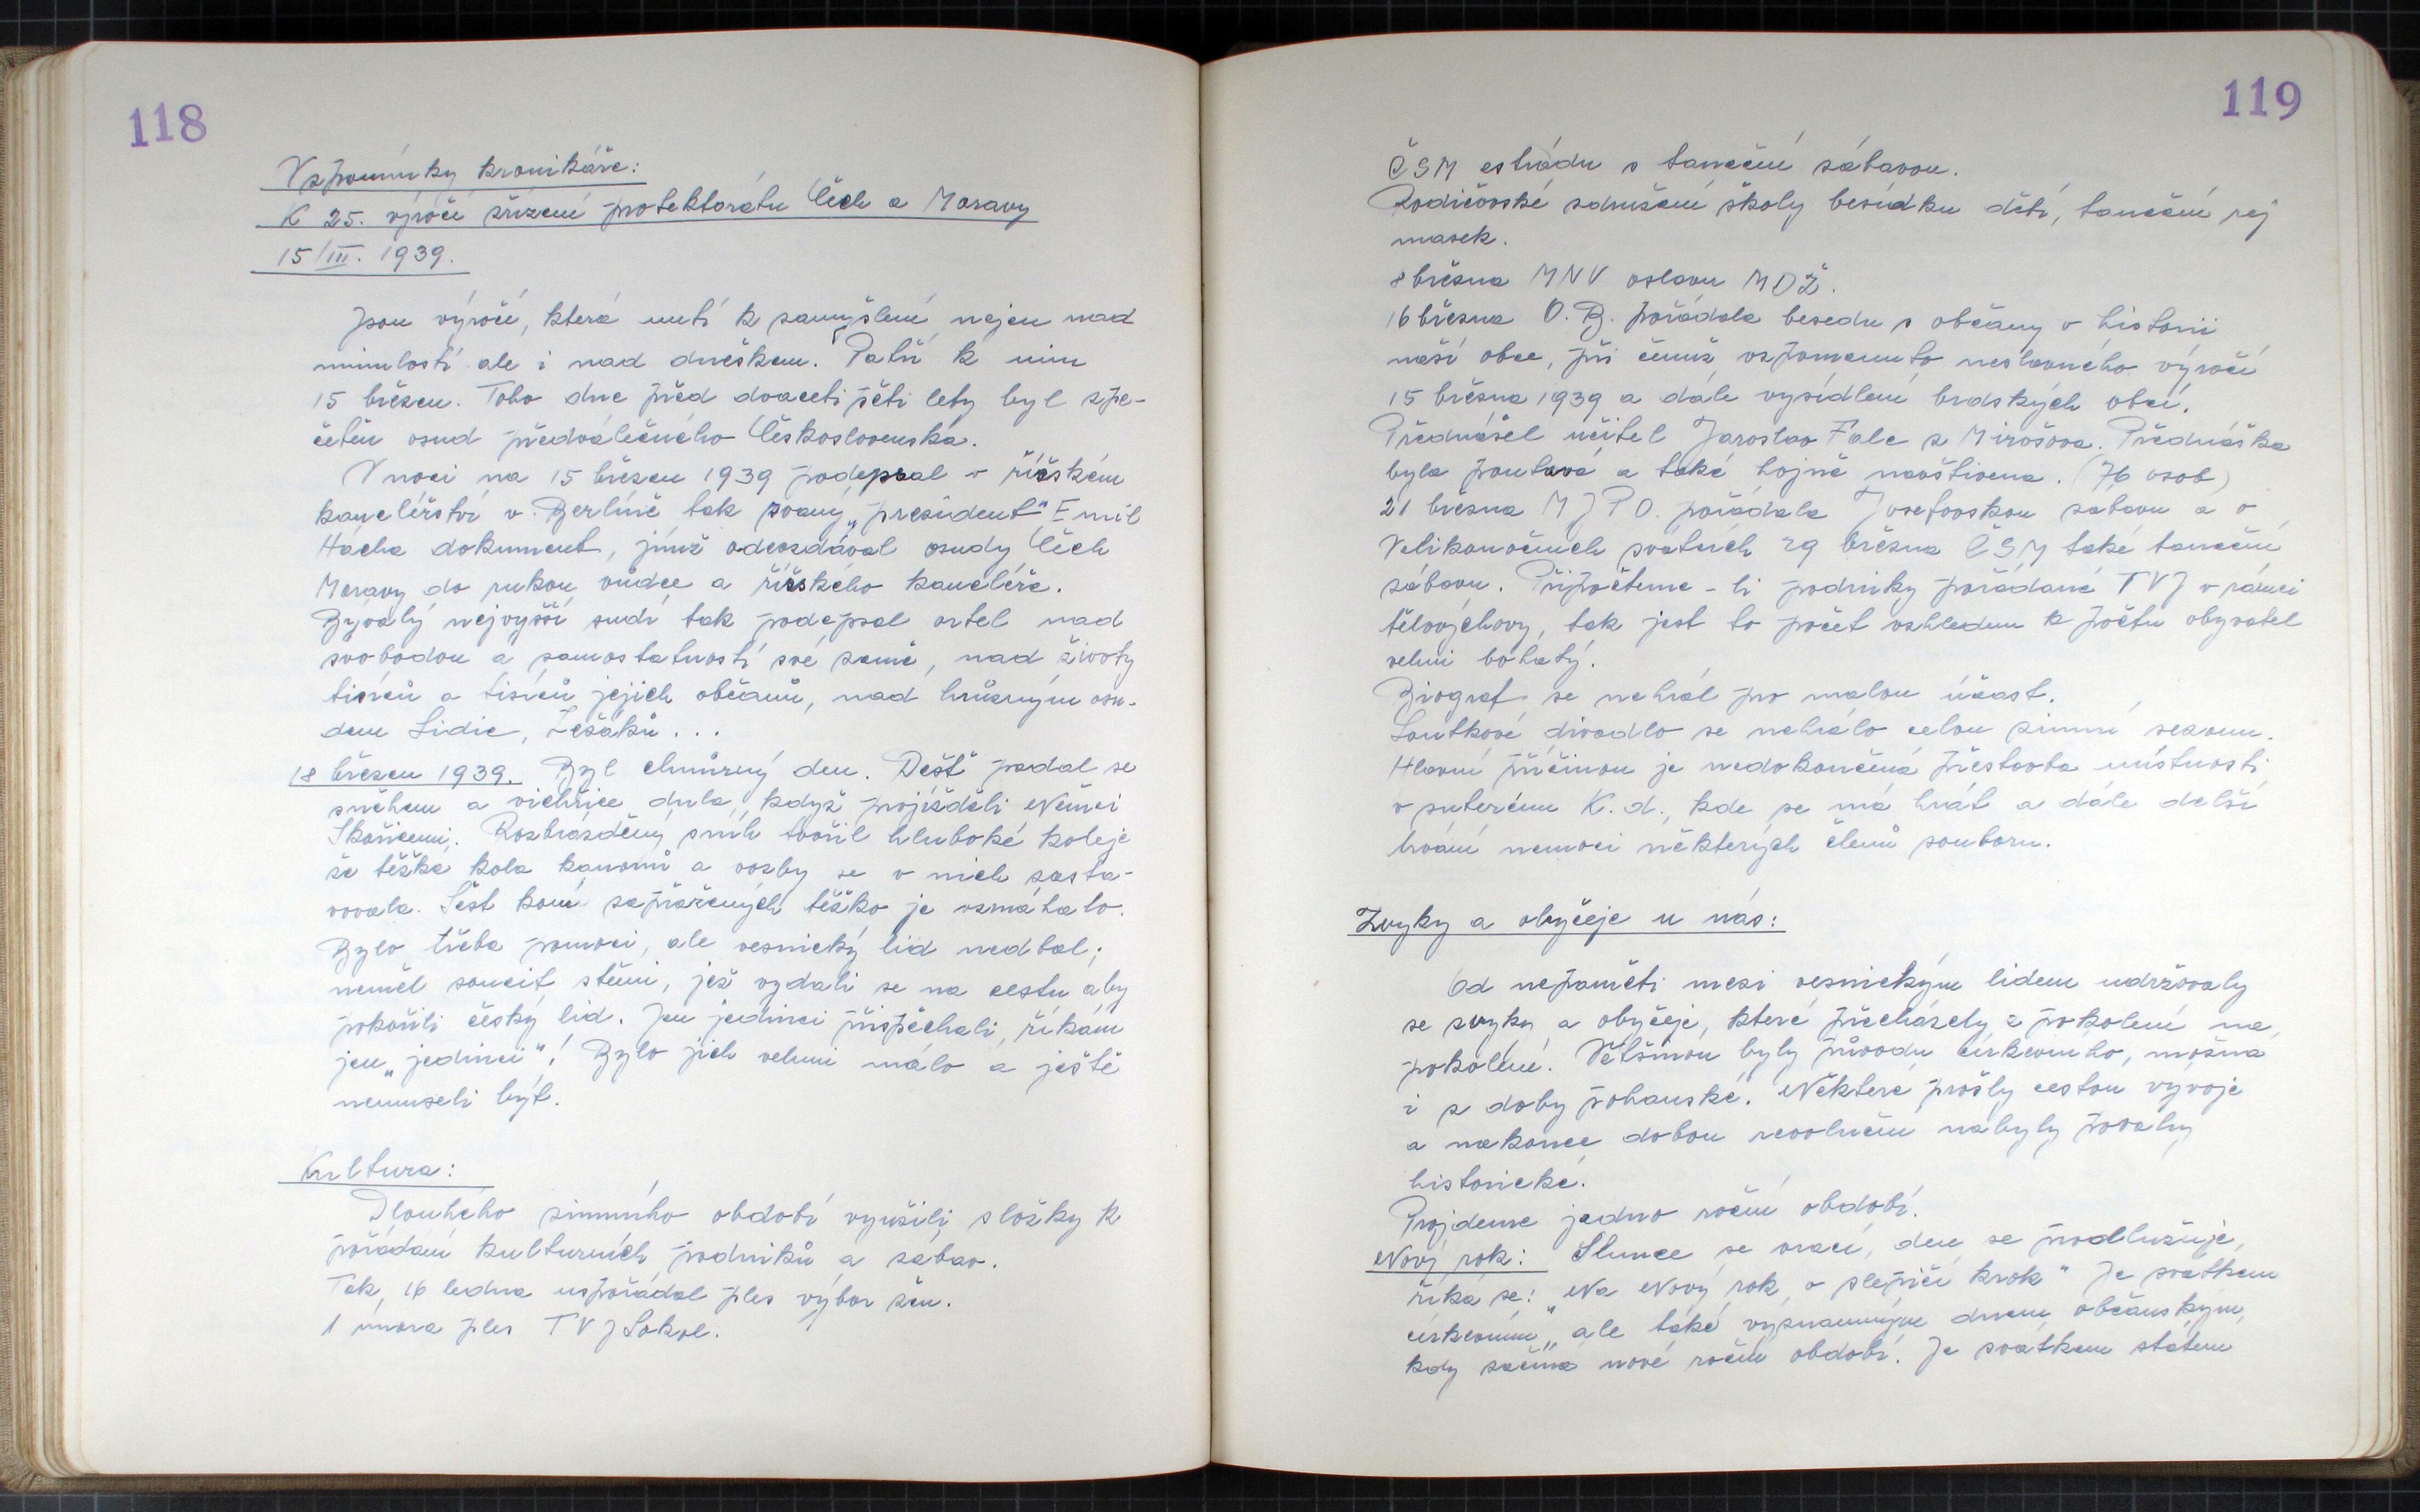 118
Vzpomínky kronikáře:
K 25. výročí zřízení protektorátu Čech a Moravy
15/III. 1939.
Jsou výročí, která nutí k zamyšlení nejen nad
minulostí ale i nad dneškem. Patří k nim
15 březen. Toho dne před dvaceti pěti lety byl zpe-
četěn osud předválečného Československa.
V noci na 15 březen 1939 podepsal v říšském
kancléřství v Berlíně tak zvaný „president" Emil
Hácha dokument, jímž odevzdával osudy Čech
Moravy do rukou vůdce a říšského kancléře.
Bývalý nejvyšší sudí tak podepsal ortel nad
svobodou a samostatností své země, nad životy
tisíců a tisíců jejich občanů, nad hrůzným osu-
dem Lidic, Ležáků...
18 březen 1939. Byl chmurný den. Déšť padal se
sněhem a vichřice dula, když projížděli Němci
Skořicemi. Rozbrázděný sníh tvořil hluboké koleje
že těžká kola kanonů a vozby se v nich zasta-
vovala. Šest koní zapřažených těžko je vzmáhalo.
Bylo třeba pomoci, ale vesnický lid nedbal;
neměl soucit stěmi, jež vydali se na cestu aby
pokořili český lid. Jen jedinci přispěchali, říkám
jen „jedinci"! Bylo jich velmi málo a ještě
nemuseli být.
Kultura:
Dlouhého zimního období využili složky k
pořádání kulturních podniků a zábav.
Tak, 16 ledna uspořádal ples výbor žen.
1 února ples TVJ Sokol.
119
ČSM estrádu s taneční zábavou.
Rodičovské sdružení školy besídku dětí, taneční rej
masek.
8 března MNV oslavu MDŽ.
16 března O.B. pořádala besedu s občany o historii
naší obce, při čemž vzpomenuto neslavného výročí
15 března 1939 a dále vysídlení brdských obcí.
Přednášel učitel Jaroslav Falc z Mirošova. Přednáška
byla poutavá a také hojně navštivena. (76 osob)
21 března MJPO. pořádala Josefovskou zábavu a o
Velikonočních svátcích 29 března ČSM také taneční
zábavu. Připočteme-li podniky pořádané TVJ v rámci
tělovýchovy, tak jest to počet vzhledem k počtu obyvatel
velmi bohatý.
Biograf se nehrál pro malou účast.
Loutkové divadlo se nehrálo celou zimní sezonu.
Hlavní příčinou je nedokončená přestavba místnosti
v suterénu K.d., kde se má hrát a dále delší
trvání nemoci některých členů souboru.
Zvyky a obyčeje u nás:
Od nepaměti mezi vesnickým lidem udržovaly
se zvyky a obyčeje, které přecházely z pokolení na
pokolení. Většinou byly původu církevního, možná
i z doby pohanské. Některé prošly cestou vývoje
a nakonec dobou revoluční nabyly povahy
historické.
Projdeme jedno roční období.
Nový rok: Slunce se vrací, den se prodlužuje,
říká se: „Na Nový rok, o slepičí krok" Je svátkem
církevním, ale také významným dnem občanským,
kdy začíná nové roční období. Je svátkem státem